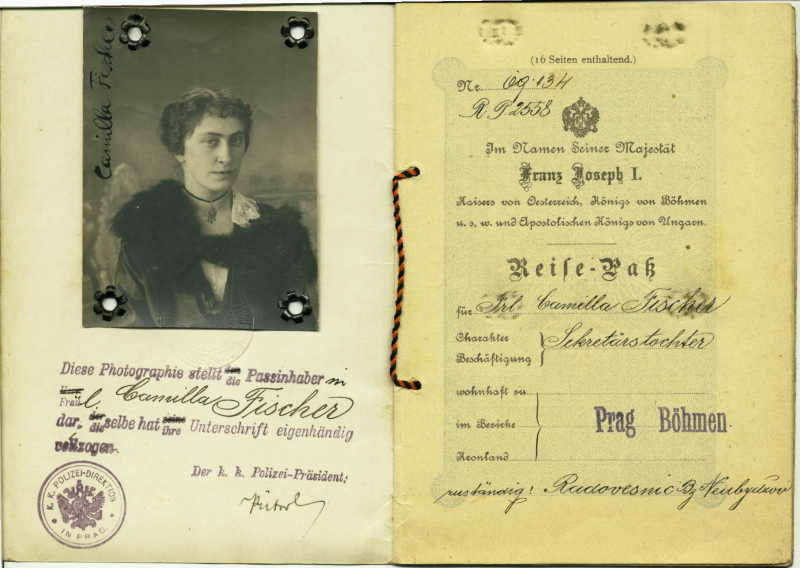 Camilla Fischer
Diese Photographie stellt den die Passinhaber in
Herrn
Fräul. Camilla Fischer
dar, der die selbe hat seine ihre Unterschrift eigenhändig
vollzogen.
Der k. k. Polizei-Präsident:
K. K. POLIZEI-DIREKTION
IN PRAG.
(16 Seiten enthaltend.)
Nr.
R. P. 2558
Im Namen Seiner Majestät
Franz Joseph I.
Kaisers von Oesterreich, Königs von Böhmen
u. s. w. und Apostolischen Königs von Ungarn.
Reise-Paß
für Frl. Camilla Fischer
Charakter
Beschäftigung } Sekretärstochter
wohnhaft zu
im Bezirke
Kronland
Prag Böhmen.
zuständig: Radovesnic Bz Neubydžov